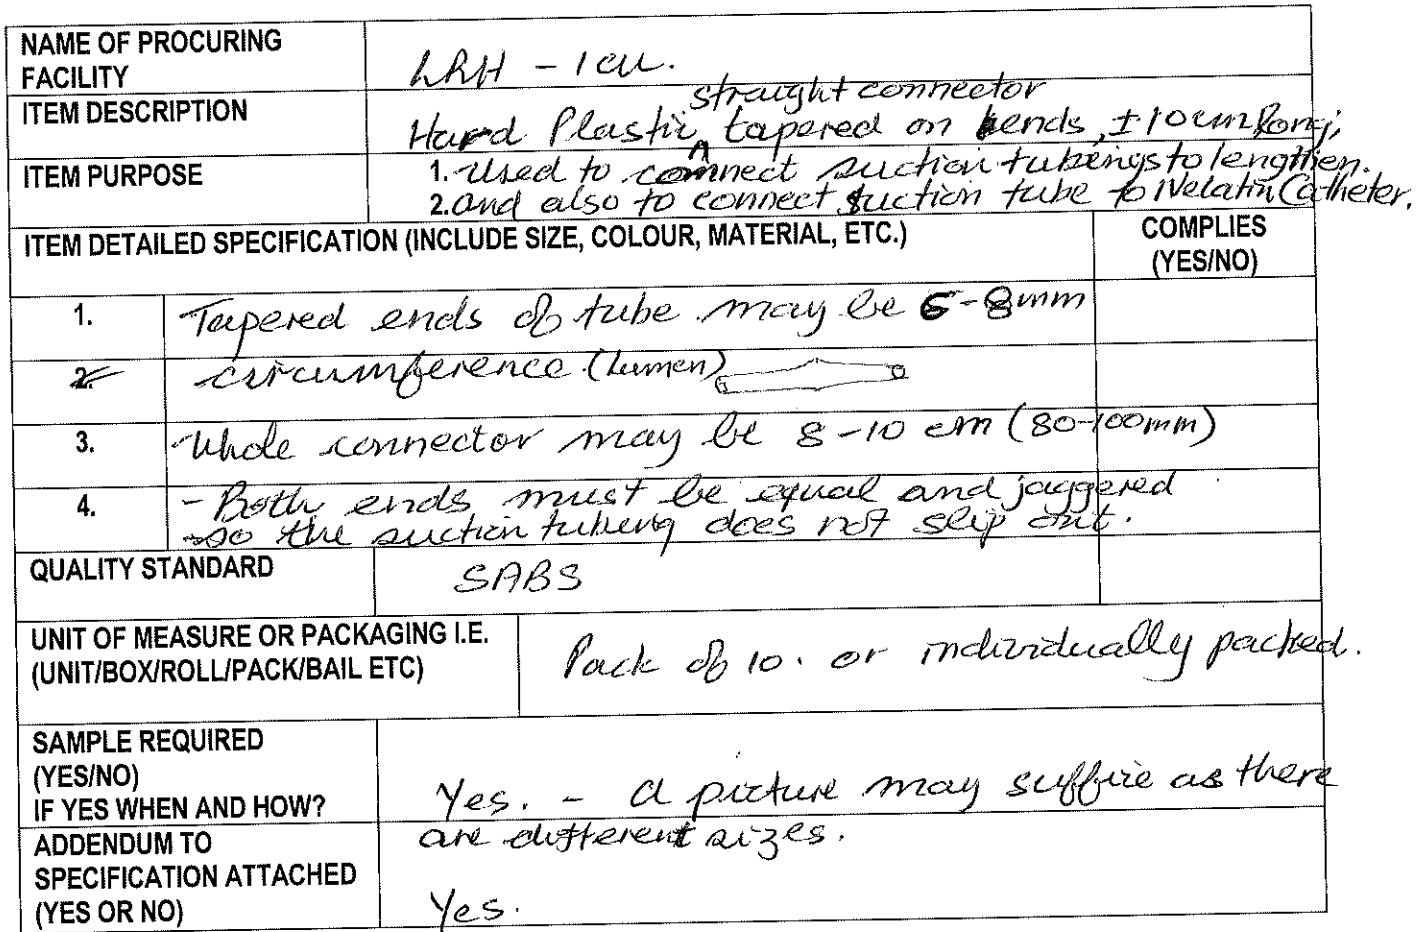 NAME OF PROCURING
FACILITY
LRH - ICU.
ITEM DESCRIPTION
straight connector
Hard Plastic ^ tapered on ends, ±10cm long;
ITEM PURPOSE
1. Used to connect suction tubings to lengthen.
2. and also to connect suction tube to Nelatin Catheter.
ITEM DETAILED SPECIFICATION (INCLUDE SIZE, COLOUR, MATERIAL, ETC.)
COMPLIES
(YES/NO)
1. Tapered ends of tube may be 6-8mm
2. circumference (Lumen)
3. -Whole connector may be 8-10 cm (80-100mm)
4. - Both ends must be equal and jaggered
so the suction tubing does not slip out.
QUALITY STANDARD
SABS
UNIT OF MEASURE OR PACKAGING I.E.
(UNIT/BOX/ROLL/PACK/BAIL ETC)
Pack of 10. or individually packed.
SAMPLE REQUIRED
(YES/NO)
IF YES WHEN AND HOW?
Yes. - a picture may suffice as there
are different sizes.
ADDENDUM TO
SPECIFICATION ATTACHED
(YES OR NO)
Yes.